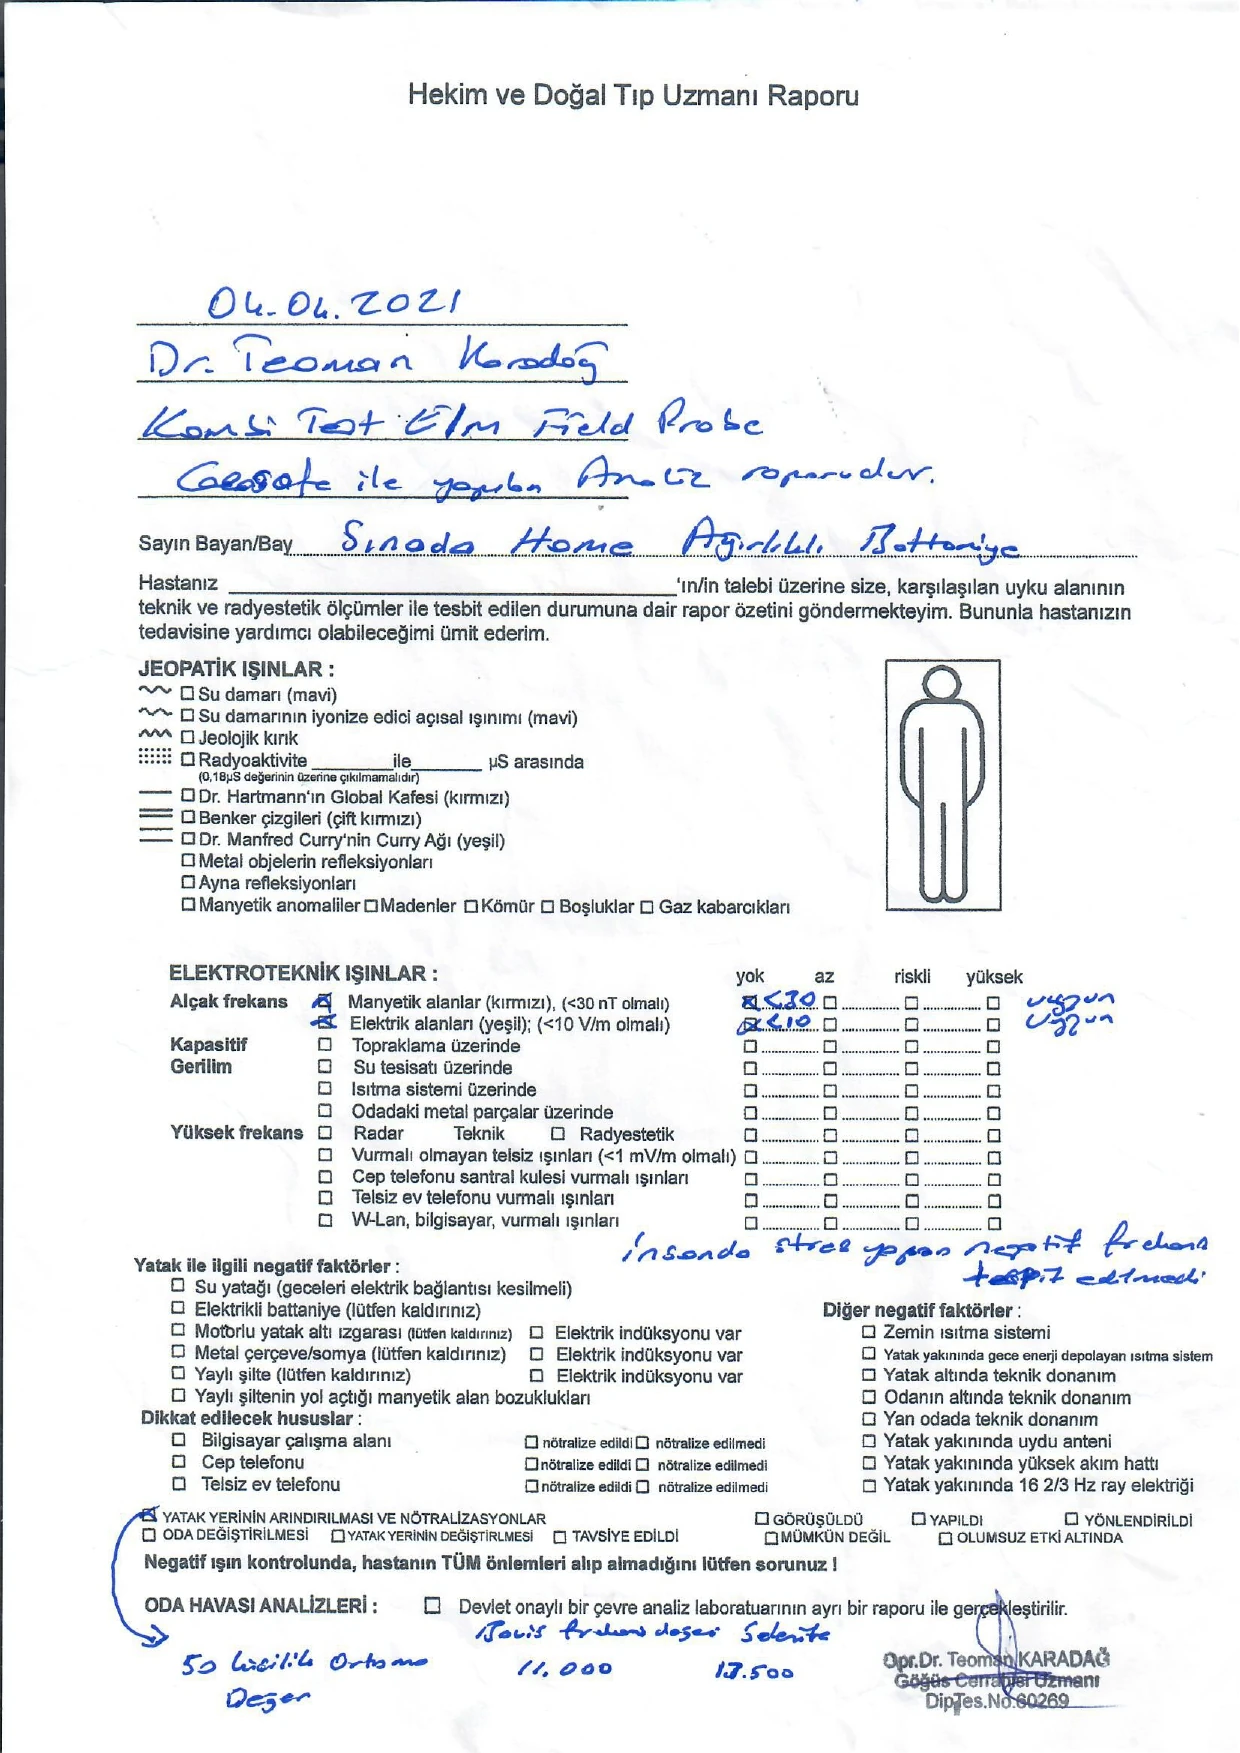 Hekim ve Doğal Tıp Uzmanı Raporu
04.04.2021
Dr. Teoman Karadağ
Kombi Test Elm Field Probe
Geosafe ile yapılan Analiz raporudur.
Sayın Bayan/Bay Sinada Home Ağırlıklı Battaniye
Hastanız 'ın/in talebi üzerine size, karşılaşılan uyku alanının
teknik ve radyestetik ölçümler ile tesbit edilen durumuna dair rapor özetini göndermekteyim. Bununla hastanızın
tedavisine yardımcı olabileceğimi ümit ederim.
JEOPATİK IŞINLAR :
Su damarı (mavi)
Su damarının iyonize edici açısal ışınımı (mavi)
Jeolojik kırık
Radyoaktivite ile µS arasında
(0,18µS değerinin üzerine çıkılmamalıdır)
Dr. Hartmann'ın Global Kafesi (kırmızı)
Benker çizgileri (çift kırmızı)
Dr. Manfred Curry'nin Curry Ağı (yeşil)
Metal objelerin refleksiyonları
Ayna refleksiyonları
Manyetik anomaliler Madenler Kömür Boşluklar Gaz kabarcıkları
ELEKTROTEKNİK IŞINLAR : yok az riskli yüksek
Alçak frekans Manyetik alanlar (kırmızı), (<30 nT olmalı) <30 uygun
Elektrik alanları (yeşil); (<10 V/m olmalı) <10 uygun
Kapasitif Topraklama üzerinde
Gerilim Su tesisatı üzerinde
Isıtma sistemi üzerinde
Odadaki metal parçalar üzerinde
Yüksek frekans Radar Teknik Radyestetik
Vurmalı olmayan telsiz ışınları (<1 mV/m olmalı)
Cep telefonu santral kulesi vurmalı ışınları
Telsiz ev telefonu vurmalı ışınları
W-Lan, bilgisayar, vurmalı ışınları
insanda stres yapan negatif frekans
tespit edilmedi
Yatak ile ilgili negatif faktörler :
Su yatağı (geceleri elektrik bağlantısı kesilmeli)
Elektrikli battaniye (lütfen kaldırınız)
Motorlu yatak altı ızgarası (lütfen kaldırınız) Elektrik indüksyonu var
Metal çerçeve/somya (lütfen kaldırınız) Elektrik indüksyonu var
Yaylı şilte (lütfen kaldırınız) Elektrik indüksyonu var
Yaylı şiltenin yol açtığı manyetik alan bozuklukları
Diğer negatif faktörler :
Zemin ısıtma sistemi
Yatak yakınında gece enerji depolayan ısıtma sistem
Yatak altında teknik donanım
Odanın altında teknik donanım
Yan odada teknik donanım
Yatak yakınında uydu anteni
Yatak yakınında yüksek akım hattı
Yatak yakınında 16 2/3 Hz ray elektriği
Dikkat edilecek hususlar :
Bilgisayar çalışma alanı nötralize edildi nötralize edilmedi
Cep telefonu nötralize edildi nötralize edilmedi
Telsiz ev telefonu nötralize edildi nötralize edilmedi
YATAK YERİNİN ARINDIRILMASI VE NÖTRALİZASYONLAR GÖRÜŞÜLDÜ YAPILDI YÖNLENDİRİLDİ
ODA DEĞİŞTİRİLMESİ YATAK YERİNİN DEĞİŞTİRLMESİ TAVSİYE EDİLDİ MÜMKÜN DEĞİL OLUMSUZ ETKİ ALTINDA
Negatif ışın kontrolunda, hastanın TÜM önlemleri alıp almadığını lütfen sorunuz !
ODA HAVASI ANALİZLERİ : Devlet onaylı bir çevre analiz laboratuarının ayrı bir raporu ile gerçekleştirilir.
Bovis frekans değeri
50 kişilik Ortama 11.000 17.500
Değer
Opr.Dr. Teoman KARADAĞ
Göğüs Cerrahisi Uzmanı
Dip.Tes.No:60269